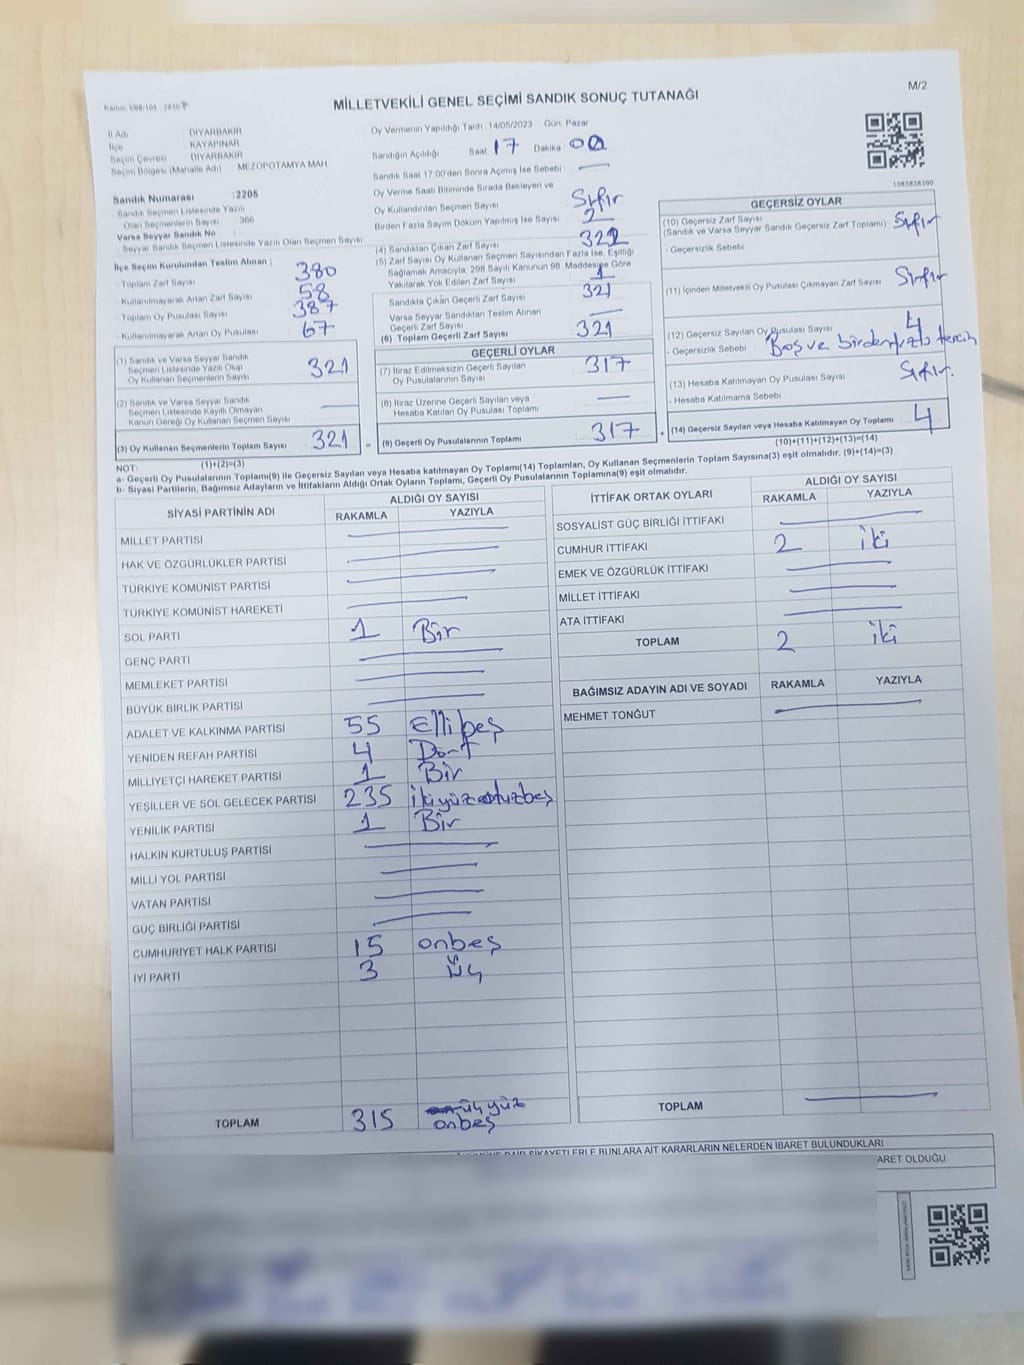 MİLLETVEKİLİ GENEL SEÇİMİ SANDIK SONUÇ TUTANAĞI
M/2
İl Adı DİYARBAKIR
İlçe KAYAPINAR
Seçim Çevresi DİYARBAKIR
Seçim Bölgesi (Mahalle Adı) MEZOPOTAMYA MAH
Sandık Numarası :2205
- Sandık Seçmen Listesinde Yazılı
Olan Seçmenlerin Sayısı : 366
Varsa Seyyar Sandık No
- Seyyar Sandık Seçmen Listesinde Yazılı Olan Seçmen Sayısı
İlçe Seçim Kurulundan Teslim Alınan ;
- Toplam Zarf Sayısı 380
- Kullanılmayarak Artan Zarf Sayısı 58
- Toplam Oy Pusulası Sayısı 387
- Kullanılmayarak Artan Oy Pusulası 67
(1) Sandık ve Varsa Seyyar Sandık
Seçmen Listesinde Yazılı Olup
Oy Kullanan Seçmenlerin Sayısı 321
(2) Sandık ve Varsa Seyyar Sandık
Seçmen Listesinde Kayıtlı Olmayan
Kanun Gereği Oy Kullanan Seçmen Sayısı
(3) Oy Kullanan Seçmenlerin Toplam Sayısı 321 =
(1)+(2)=(3)
Oy Vermenin Yapıldığı Tarih 14/05/2023 Gün: Pazar
Sandığın Açıldığı Saat 17 Dakika 00
Sandık Saat 17:00'den Sonra Açılmış İse Sebebi
Oy Verme Saati Bitiminde Sırada Bekleyen ve
Oy Kullandırılan Seçmen Sayısı Sıfır
Birden Fazla Sayım Döküm Yapılmış İse Sayısı 2
(4) Sandıktan Çıkan Zarf Sayısı 322
(5) Zarf Sayısı Oy Kullanan Seçmen Sayısından Fazla İse, Eşitliği
Sağlamak Amacıyla, 298 Sayılı Kanunun 98. Maddesine Göre
Yakılarak Yok Edilen Zarf Sayısı 1
Sandıkta Çıkan Geçerli Zarf Sayısı 321
Varsa Seyyar Sandıktan Teslim Alınan
Geçerli Zarf Sayısı
(6) Toplam Geçerli Zarf Sayısı 321
GEÇERLİ OYLAR
(7) İtiraz Edilmeksizin Geçerli Sayılan
Oy Pusulalarının Sayısı 317
(8) İtiraz Üzerine Geçerli Sayılan veya
Hesaba Katılan Oy Pusulası Toplamı
(9) Geçerli Oy Pusulalarının Toplamı 317 +
1083838390
GEÇERSİZ OYLAR
(10) Geçersiz Zarf Sayısı
(Sandık ve Varsa Seyyar Sandık Geçersiz Zarf Toplamı) Sıfır
- Geçersizlik Sebebi
(11) İçinden Milletvekili Oy Pusulası Çıkmayan Zarf Sayısı Sıfır
(12) Geçersiz Sayılan Oy Pusulası Sayısı 4
- Geçersizlik Sebebi Boş ve birden fazla tercih
(13) Hesaba Katılmayan Oy Pusulası Sayısı Sıfır.
- Hesaba Katılmama Sebebi
(14) Geçersiz Sayılan veya Hesaba Katılmayan Oy Toplamı 4
(10)+(11)+(12)+(13)=(14)
NOT:
a- Geçerli Oy Pusulalarının Toplamı(9) ile Geçersiz Sayılan veya Hesaba katılmayan Oy Toplamı(14) Toplamları, Oy Kullanan Seçmenlerin Toplam Sayısına(3) eşit olmalıdır. (9)+(14)=(3)
b- Siyasi Partilerin, Bağımsız Adayların ve İttifakların Aldığı Ortak Oyların Toplamı, Geçerli Oy Pusulalarının Toplamına(9) eşit olmalıdır.
SİYASİ PARTİNİN ADI ALDIĞI OY SAYISI
RAKAMLA YAZIYLA
MİLLET PARTİSİ
HAK VE ÖZGÜRLÜKLER PARTİSİ
TÜRKİYE KOMÜNİST PARTİSİ
TÜRKİYE KOMÜNİST HAREKETİ
SOL PARTİ 1 Bir
GENÇ PARTİ
MEMLEKET PARTİSİ
BÜYÜK BİRLİK PARTİSİ
ADALET VE KALKINMA PARTİSİ 55 Ellibeş
YENİDEN REFAH PARTİSİ 4 Dört
MİLLİYETÇİ HAREKET PARTİSİ 1 Bir
YEŞİLLER VE SOL GELECEK PARTİSİ 235 ikiyüzotuzbeş
YENİLİK PARTİSİ 1 Bir
HALKIN KURTULUŞ PARTİSİ
MİLLİ YOL PARTİSİ
VATAN PARTİSİ
GÜÇ BİRLİĞİ PARTİSİ
CUMHURİYET HALK PARTİSİ 15 onbeş
İYİ PARTİ 3 Üç
TOPLAM 315 üçyüz
onbeş
İTTİFAK ORTAK OYLARI ALDIĞI OY SAYISI
RAKAMLA YAZIYLA
SOSYALİST GÜÇ BİRLİĞİ İTTİFAKI
CUMHUR İTTİFAKI 2 iki
EMEK VE ÖZGÜRLÜK İTTİFAKI
MİLLET İTTİFAKI
ATA İTTİFAKI
TOPLAM 2 iki
BAĞIMSIZ ADAYIN ADI VE SOYADI RAKAMLA YAZIYLA
MEHMET TONĞUT
TOPLAM
ŞİKAYETLERLE BUNLARA AİT KARARLARIN NELERDEN İBARET BULUNDUKLARI
ARET OLDUĞU